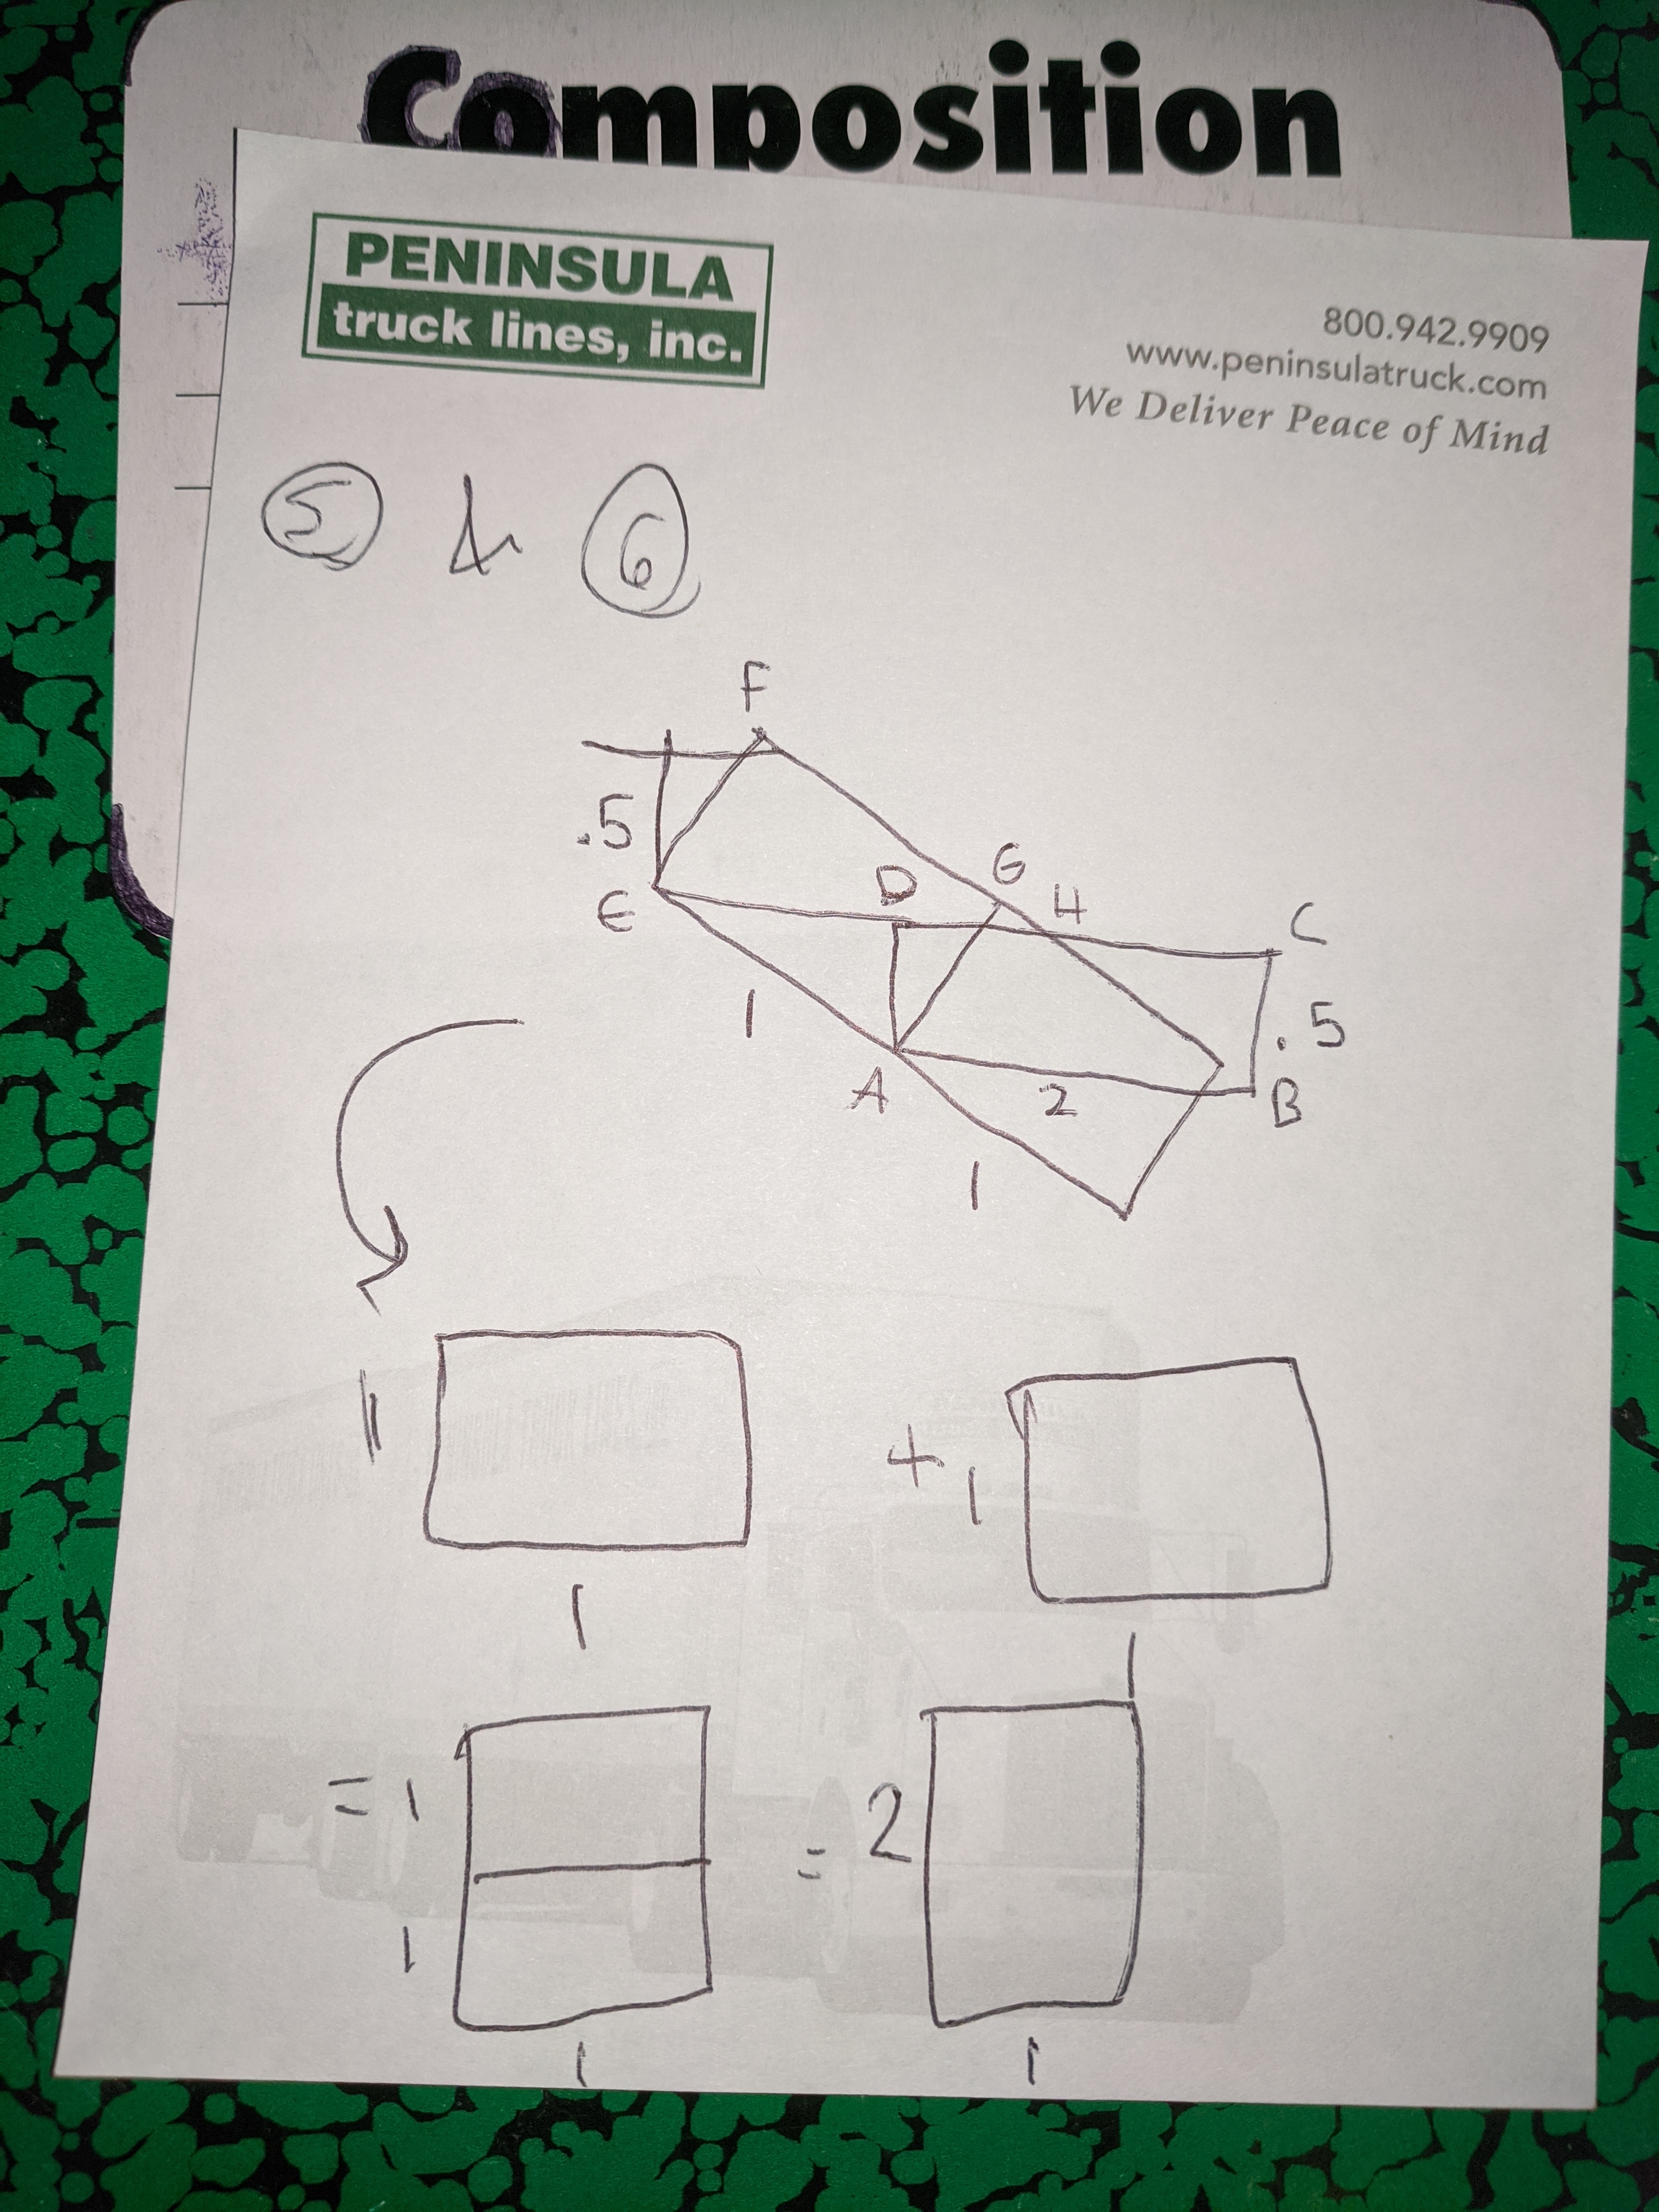 Composition
PENINSULA
truck lines, inc.
800.942.9909
www.peninsulatruck.com
We Deliver Peace of Mind
5 & 6
F
.5
E
D
G
H
C
1
.5
A
2
B
1
1
+ 1
1
1
= 1
= 2
1
1
1